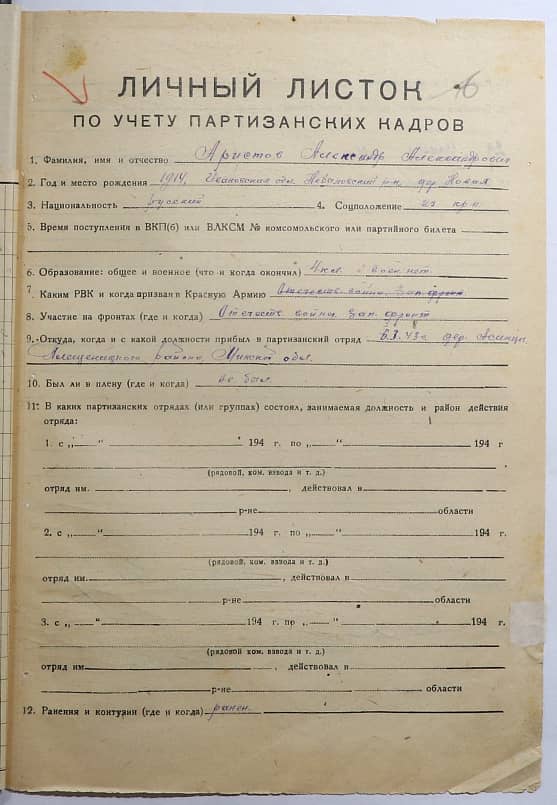 ЛИЧНЫЙ ЛИСТОК
ПО УЧЕТУ ПАРТИЗАНСКИХ КАДРОВ
1. Фамилия, имя и отчество Аристов Александр Александрович
2. Год и место рождения 1914, Ивановская обл. дер. Новая
3. Национальность русский 4. Соцположение из кр-н
5. Время поступления в ВКП(б) или ВЛКСМ № комсомольского или партийного билета
6. Образование: общее и военное (что и когда окончил) 4 кл. воен. нет
7. Каким РВК и когда призван в Красную Армию Отечеств. война, Зап. фронт
8. Участие на фронтах (где и когда) Отечеств. война, Зап. фронт
9. Откуда, когда и с какой должности прибыл в партизанский отряд 43 г. дер.
Плещеницкого района, Минской обл.
10. Был ли в плену (где и когда) не был
11. В каких партизанских отрядах (или группах) состоял, занимаемая должность и район действия
отряда:
1. с „ — “ 194 г. по „ — “ 194 г
(рядовой, ком. взвода и т. д.)
отряд им. , действовал в
р-не области
2. с „ — “ 194 г. по „ — “ 194 г.
(рядовой, ком. взвода и т. д.)
отряд им. , действовал в
р-не области
3. с „ — “ 194 г. по „ — “ 194 г.
(рядовой, ком. взвода и т. д.)
отряд им , действовал в
р-не области
12. Ранения и контузии (где и когда) ранен